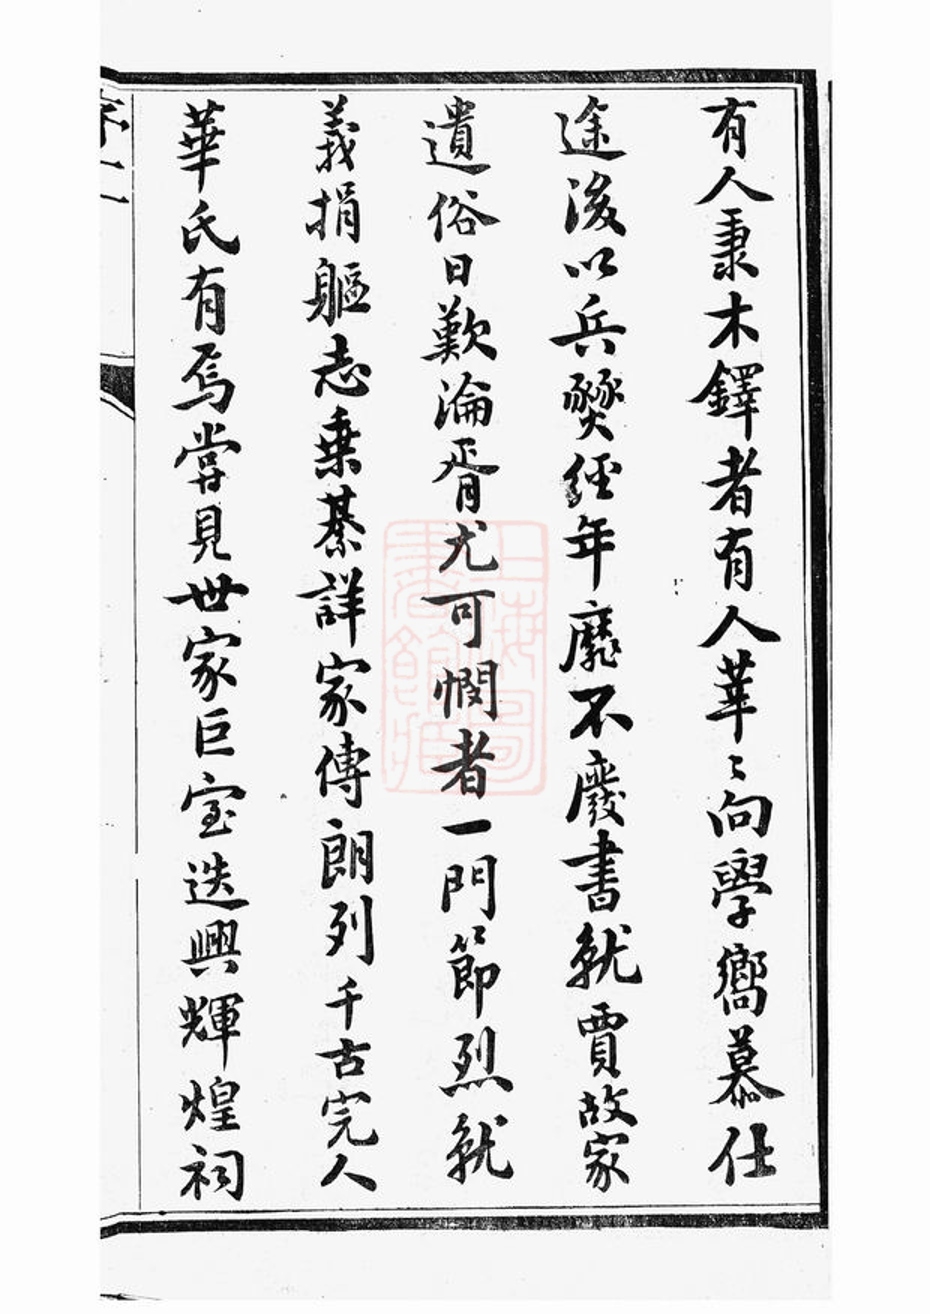 有人秉木鐸者有人莘〻向學嚮慕仕
途後以兵燹經年靡不廢書就賈故家
遺俗日歎淪胥尤可憫者一門節烈就
義捐軀志乘綦詳家傳朗列千古完人
華氏有焉嘗見世家巨室迭興輝煌祠
序
上海圖書館藏